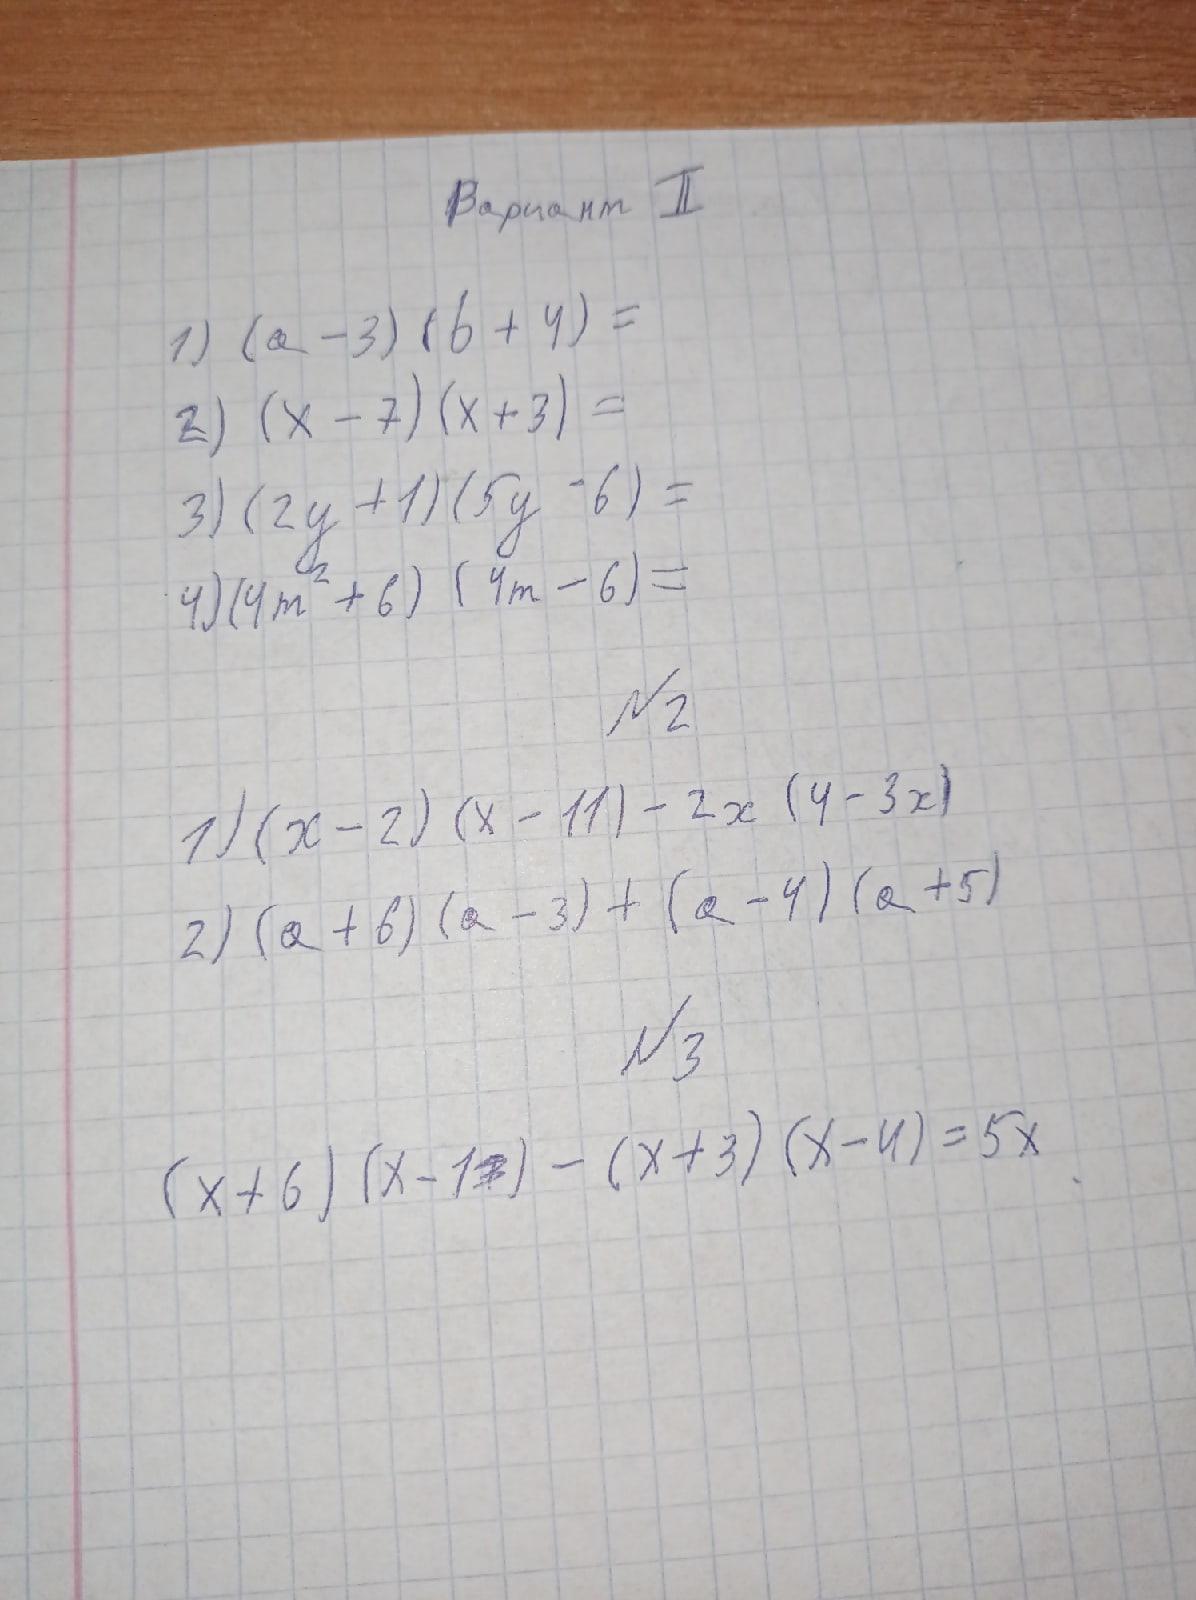 Вариант II
1) (a - 3) (b + 4) =
2) (x - 7) (x + 3) =
3) (2y + 1) (5y - 6) =
4) (4m² + 6) (4m - 6) =
№2
1) (x - 2) (x - 11) - 2x (4 - 3x)
2) (a + 6) (a - 3) + (a - 4) (a + 5)
№3
(x + 6) (x - 1) - (x + 3) (x - 4) = 5x